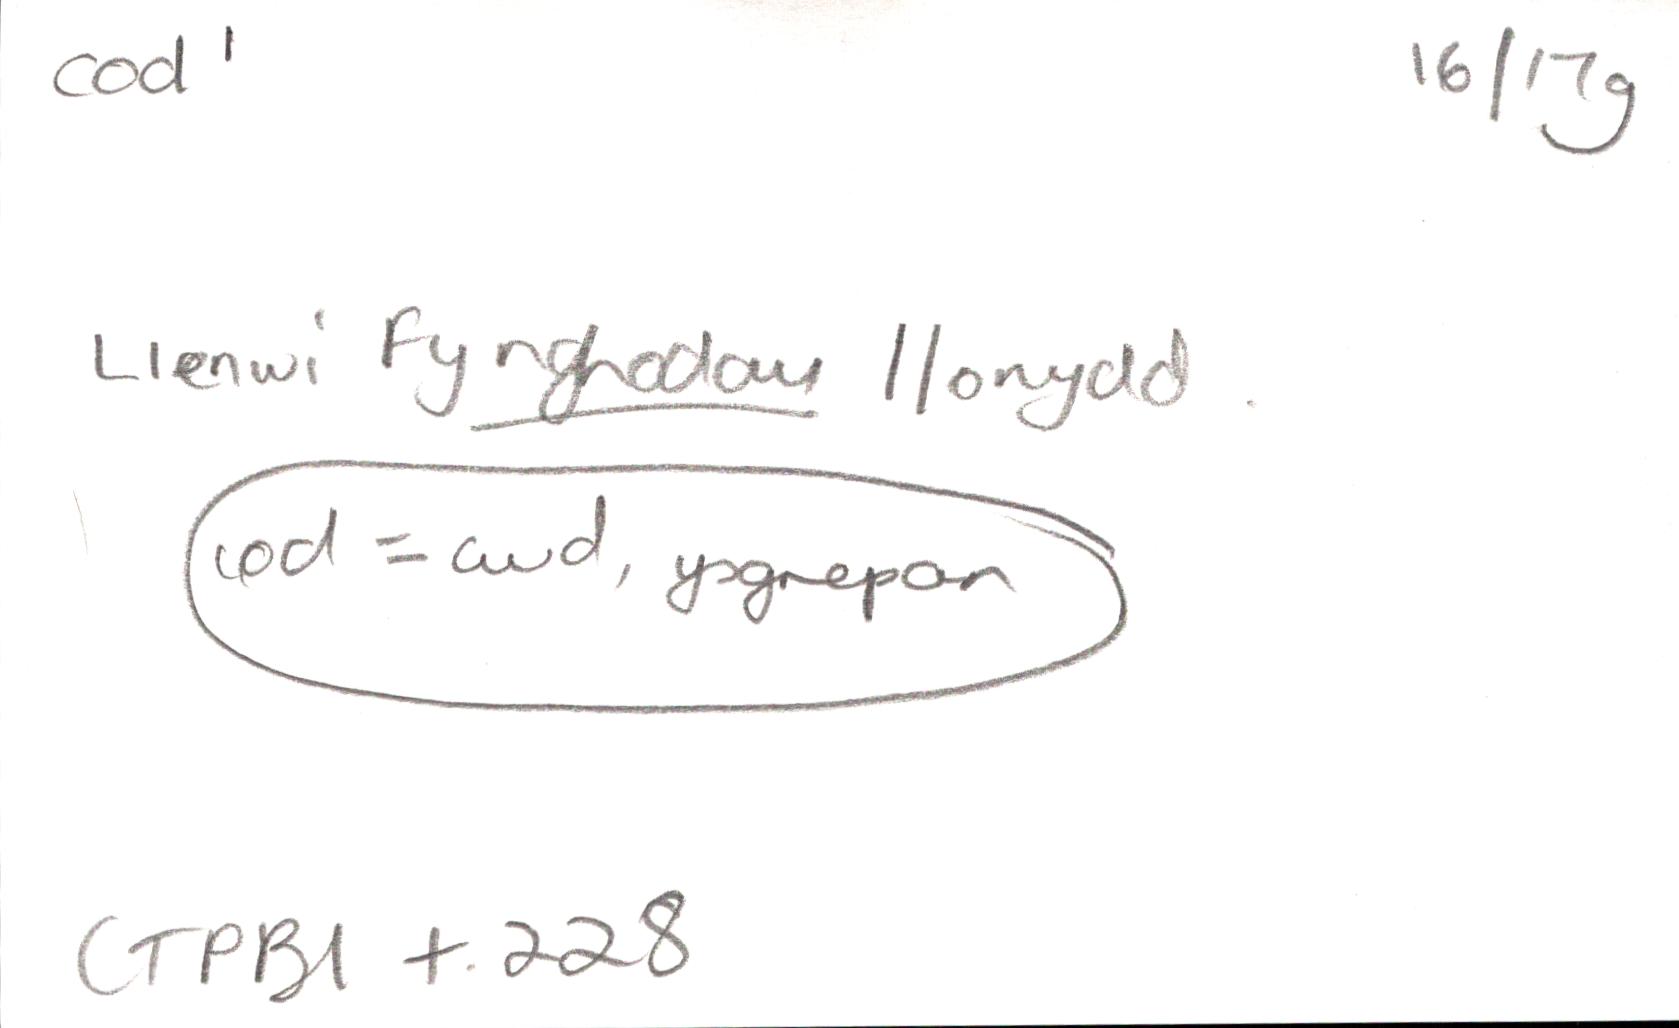 cod¹ 16/17g
Llenwi fy nghodau llonydd.
cod = cwd, ysgrepan
CTPB1 t. 228